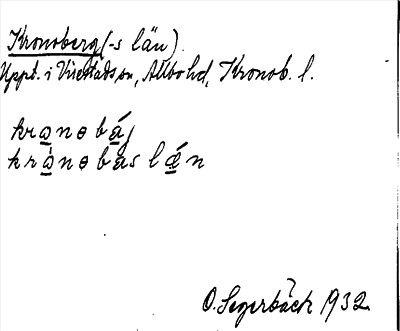 Kronoberg (-s län).
Uppt. i Virestads sn, Allbo hd, Kronob. l.
kro̲nobá̲j
krò̲noba̲slǽ̲n
O. Segerbäck 1932.